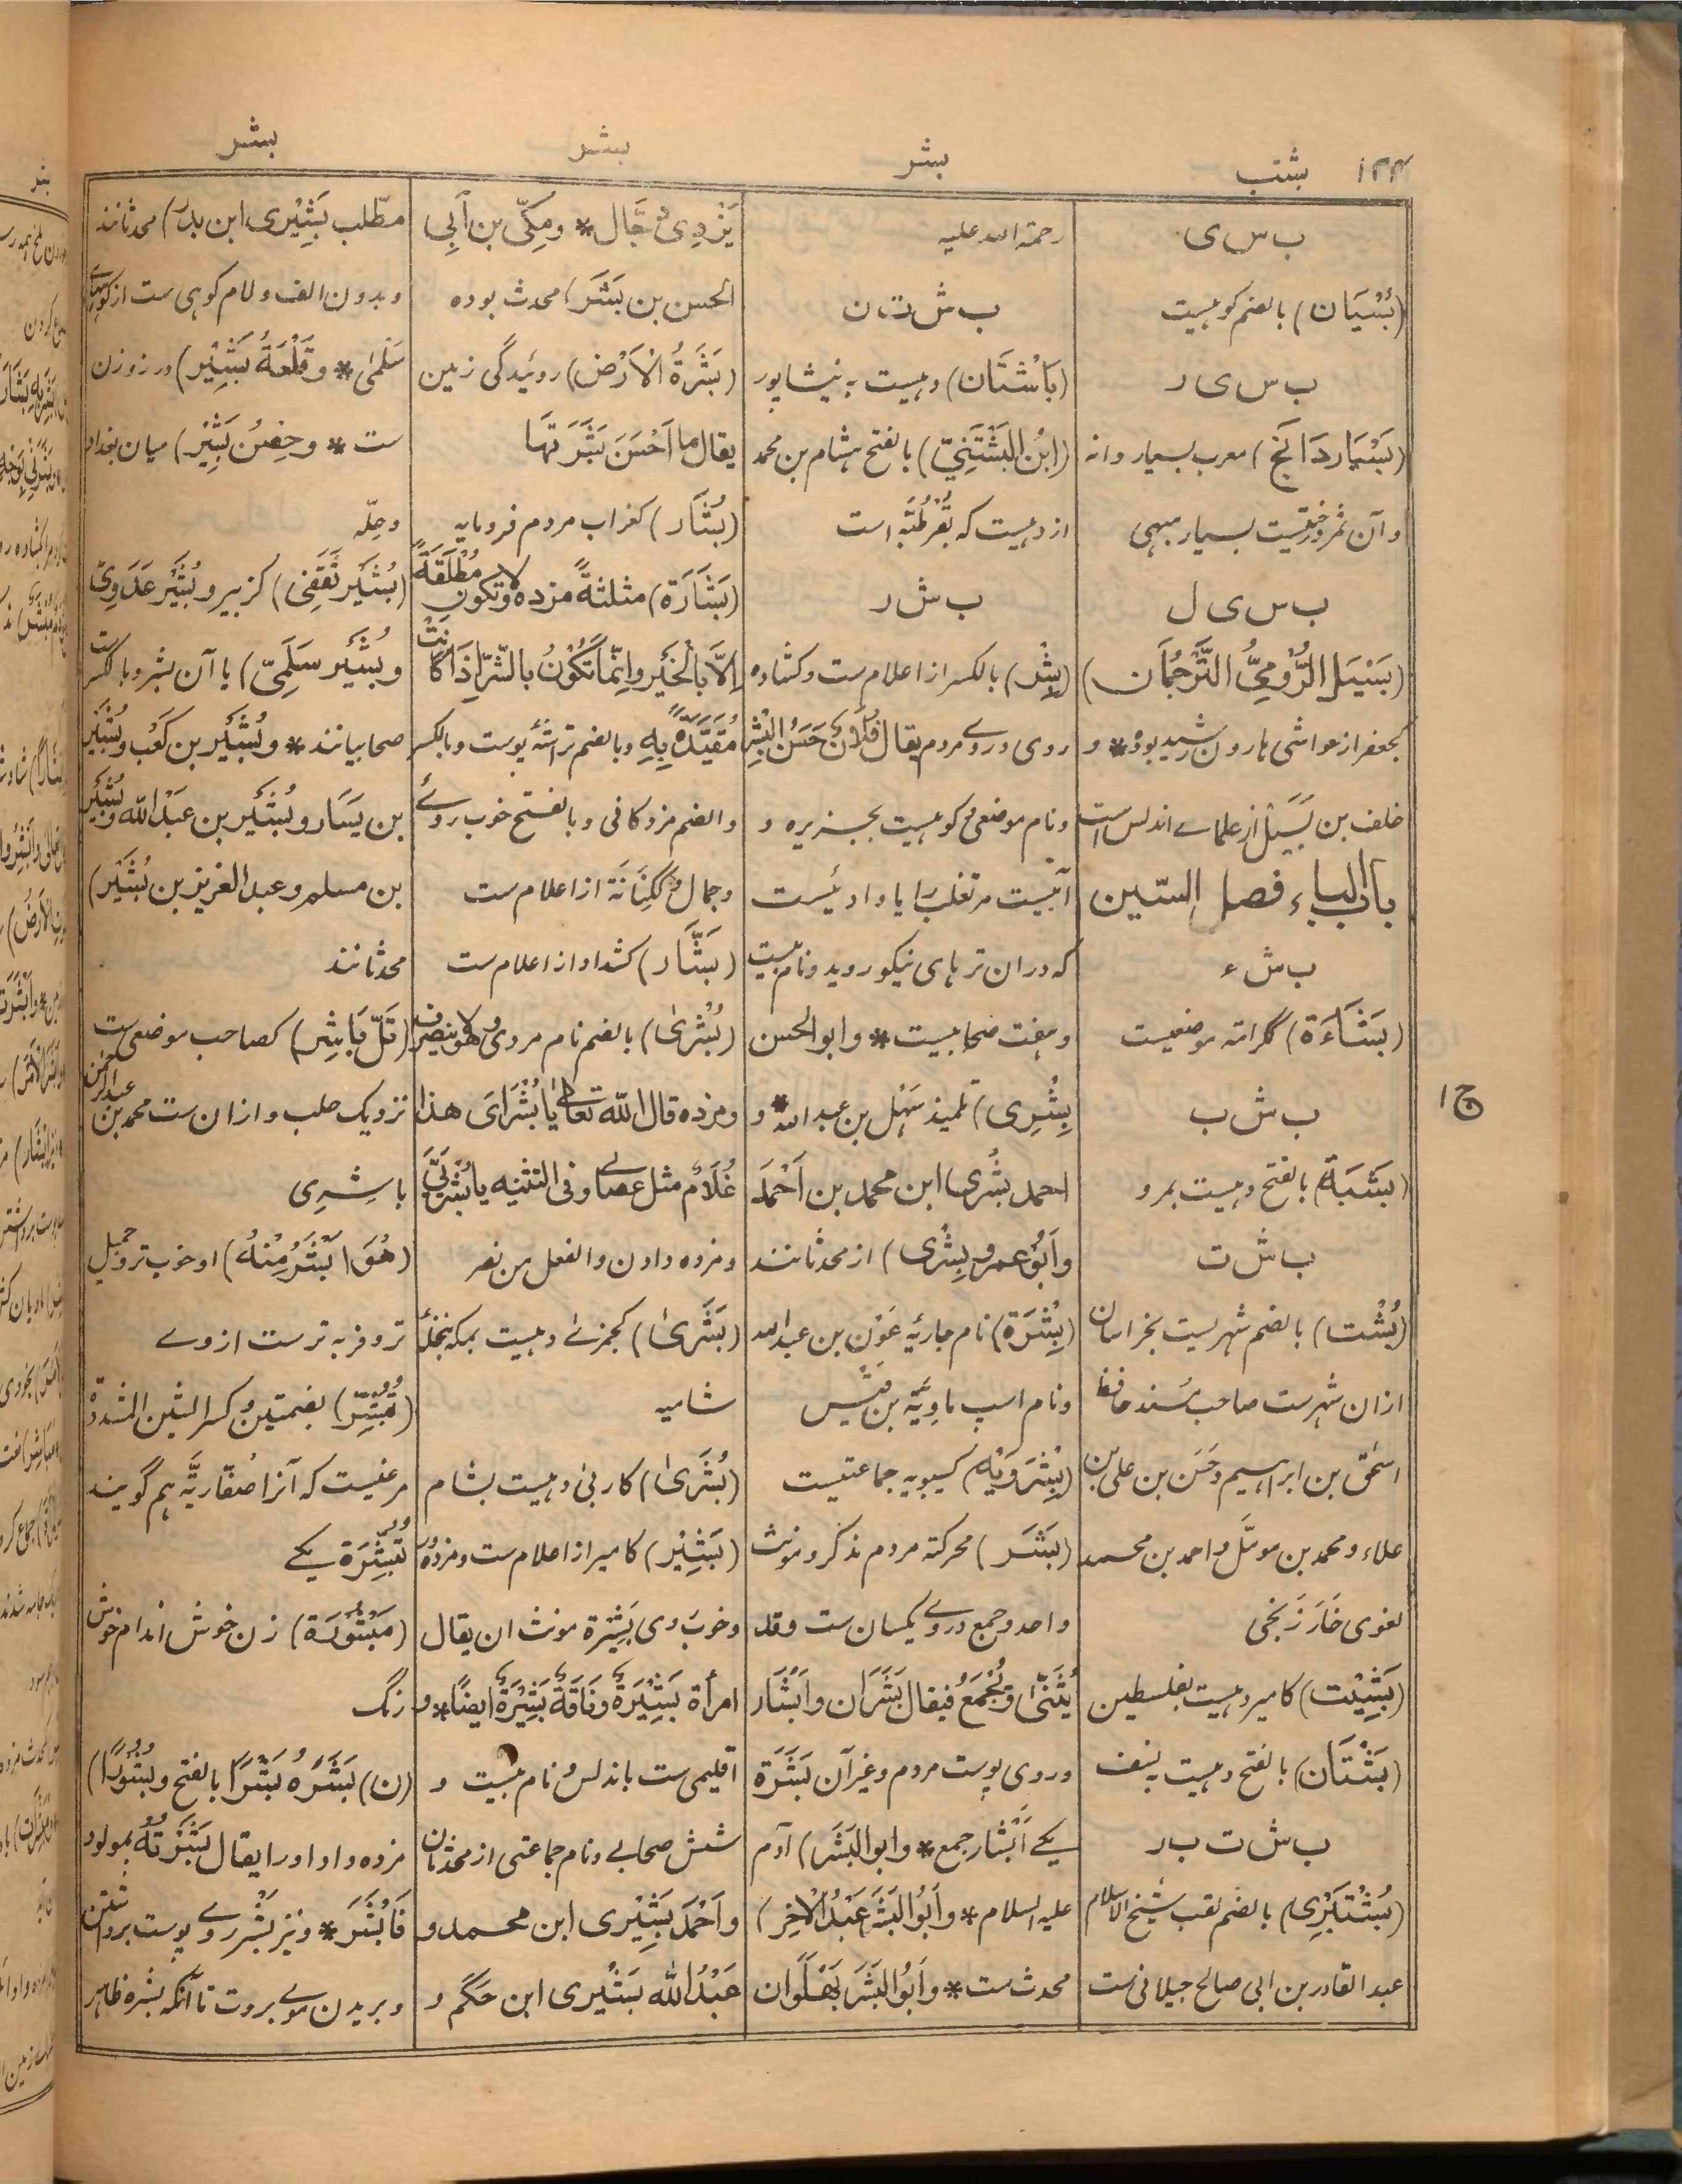 ۱۲۴
بشب
بشر
بشر
بشر
ب س ی
(بُسْیَان) بالضم کوهیست
ب س ی ر
(بَسْیَاردَانَج) معرب بسیار دانه
و آن ثمر درختیست بسیار مبهی
ب س ی ل
(بَسِیَل الرُّومِیُّ التَّرْجُمَان)
کجعفر از مواشی هارون رشید بوده * و
خلف بن بَسِیَل از علمای اندلس است
باب الباء فصل الشین
ب ش ء
(بَشَاءَة) کمرائة موضعیست
ب ش ب
(بَشْبَة) بالفتح دهیست بمرو
ب ش ت
(بُشْت) بالضم شهریست بخراسان
ازان شهرست صاحب مُسند حافظ
اسحٰق بن ابراهیم و حَسَن بن علی بن
علاء و محمد بن مومّل و احمد بن محمد
لغوی خَارَزَنجی
(بَشِیْت) کامیر دهیست بفلسطین
(بَشْتَان) بالفتح دهیست به نسف
ب ش ت ب ر
(بُشْتَبَرِی) بالضم لقب شیخ الاسلام
عبد القادر بن ابی صالح جیلانی ست
رحمة الله علیه
ب ش ت ن
(بَاشْتَان) دهیست به نیشاپور
(ابْن البَشْتَنِیّ) بالفتح هشام بن محمد
از دهیست که بقُرطُبَه است
ب ش ر
(بِشْر) بالکسر از اعلام ست و کشاده
روی و روے مردم یقال فُلَانٌ حَسَنُ البِشْرِ
و نام موضعی و کوهیست بجزیره و
آبیست مر تغلب را یا وادئیست
که دران تره‌های نیکو روید و نام
و هفت صحابیست * و ابوالحسن
بِشْرِی) تلمیذ سَهْل بن عبد الله * و
احمد بِشْری ابن محمد بن اَحْمَد
و اَبُو عمرو بِشْری) از محدثانند
(بِشْرَة) نام جاریهٔ عَوْن بن عبد الله
و نام اسپ ماوِیَّة بن قیس
(بِشْرَوَیْه) کسیبویه جماعتیست
(بَشَر) محرکة مردم مذکر و مونث
و احد و جمع در وے یکسان ست و قد
یُثَنّٰی و یُجْمَعُ فیقال بَشَرَان و اَبْشَار
و روی پوست مردم و غیر آن بَشَرَة
یکے اَبْشَار جمع * و ابو البَشَر) آدم
علیه السلام * و اَبُو البَشَر عَبْدُ الْاٰخِر)
محدث ست * و اَبُو البَشَر بَهْلَوَان
یَزْدِی دَجَّال * و مِکِّیّ بن اَبِی
الحسن بن بَشَر) محدث بوده
(بَشَرَةُ الْاَرْض) روئیدگی زمین
یقال ما اَحْسَنَ بَشَرَتَهَا
(بُشَار) کغراب مردم فرومایه
(بَشَارَة) مثلثةً مژده و لا تکون مُطْلَقَةً
اِلَّا بالْخَیْر و اِنَّمَا تَکُوْنُ بالشَّرِّ اِذَا کَانَتْ
مُقَیَّدَةً بِهِ و بالضم تراشهٔ پوست و بالکسر
و الضم مژدگانی و بالفتح خوب روے
و جمال و کَکِنَانَة از اعلام ست
(بَشَّار) کشداد از اعلام ست
(بُشْرٰی) بالضم نام مردی و هو لا ینصرف
و مژده قال الله تعالے یَا بُشْرَایَ هٰذَا
غُلَامٌ مثل عصای و فی التثنیه یا بُشْرَیَیَّ
و مژده دادن و الفعل من نصر
(بَشَرٰی) کجمزی دهیست بمکه بنخلهٔ
شامیه
(بُشَرٰی) کاربیٰ دهیست بشام
(بَشِیْر) کامیر از اعلام ست و مژده
و خوب روی بَشِیْرَة مونث ان یقال
امرأة بَشِیْرَةٌ و نَاقَةٌ بَشِیْرَةٌ ایضًا * و
اقلیمی ست باندلس و نام و
شش صحابی و نام جماعتی از محدثان
و اَحْمَد بَشِیْرِی ابن محمد و
عَبْدُ الله بَشِیْری ابن حَکَم و
مطّلب بَشِیْرِی ابن بدر) محدثانند
و بدون الف و لام کوهی ست از کوههای
سَلْمٰی * و قَلْعَةُ بَشِیْر) در زوزن
ست * و حِصْنُ بَشِیْر) میان بغداد
و حِلّه
(بُشَیْر ثَقَفِی) کزبیر و بُشَیْر عَدَوِیّ
و بُشَیْر سَلَمِیّ) یا آن بشر و بالکسر ست
صحابیانند * و بُشَیْر بن کَعْب و بُشَیْر
بن یَسَار و بُشَیْر بن عَبْد الله و بُشَیْر
بن مسلم و عبد العزیز بن بُشَیْر)
محدثانند
(تَلّ بَاشِر) کصاحب موضعی ست
نزدیک حلب و ازان ست محمد بن عبد الرحمن
باشِرِی
(هُوَ اَبْشَرُ مِنْهُ) او خوب تر و جمیل
تر و فربه ترست از وے
(تُبُشِّر) بضمتین و کسر الشین المشددة
مرغیست که آنرا صُفَّارِیَّه هم گویند
تُبُشِّرَة یکے
(مَبْشُوْرَة) زن خوش اندام خوش
رنگ
(ن) بَشَرَهُ بَشْرًا بالفتح و بُشُوْرًا)
مژده داد او را یقال بَشَرْتُهُ بمولود
فَاَبْشَرَ * و نیز بَشْر روے پوست برداشتن
و بریدن موے بروت تا آنکه بشره ظاهر
ج ۱